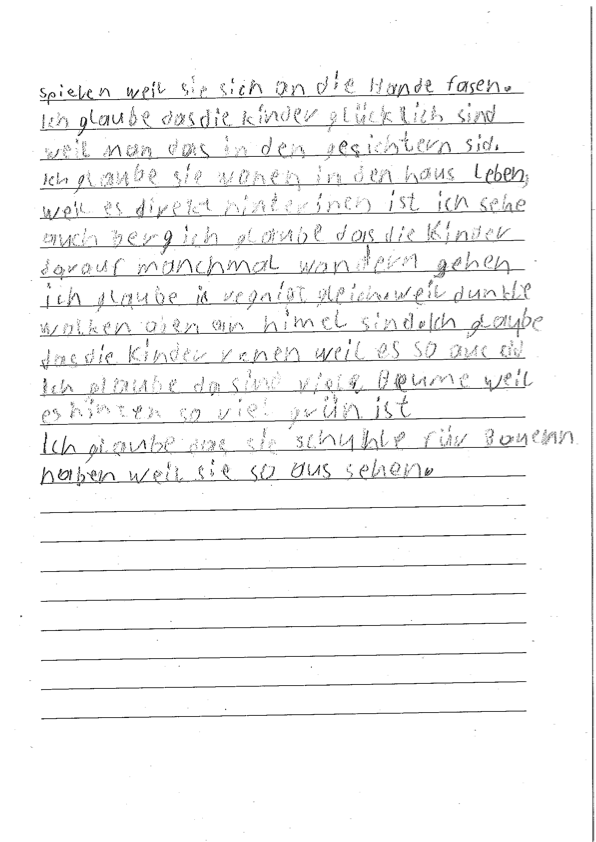 spielen weil sie sich an die Hande fasen.
Ich glaube das die kinder glücklich sind
weil man das in den gesichtern sid.
Ich glaube sie wonen in den haus Leben,
weil es direkt hinter inen ist ich sehe
auch berg ich glaube das die Kinder
darauf manchmal wandern gehen
ich glaube is regnigt gleich weil dunkle
wolken oben an himel sind Ich glaube
das die Kinder renen weil es so aus
Ich glaube da sind viele Beume weil
es hinten so viel grün ist
Ich glaube das sie schuhle für Bauern
haben weil sie so aus sehen.